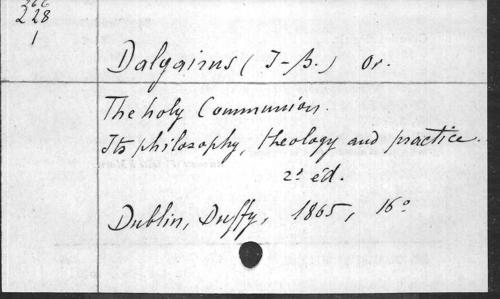 228
1
Dalgairns (J-B.) Or.
The holy Communion.
Its philosophy, theology and practice.
2d éd.
Dublin, Duffy, 1865, 16°